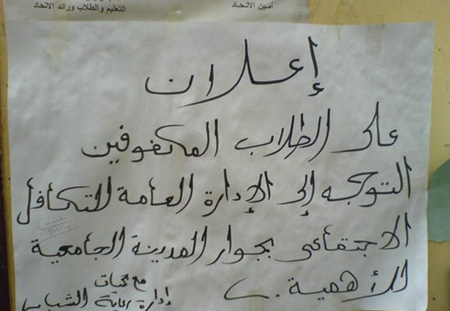 أمين الاتحاد
التعليم والطلاب ورائد الاتحاد
إعلان
على الطلاب المكفوفين
التوجه إلى الإدارة العامة للتكافل
الاجتماعى بجوار المدينة الجامعية
للأهمية
مع تحيات
إدارة رعاية الشباب